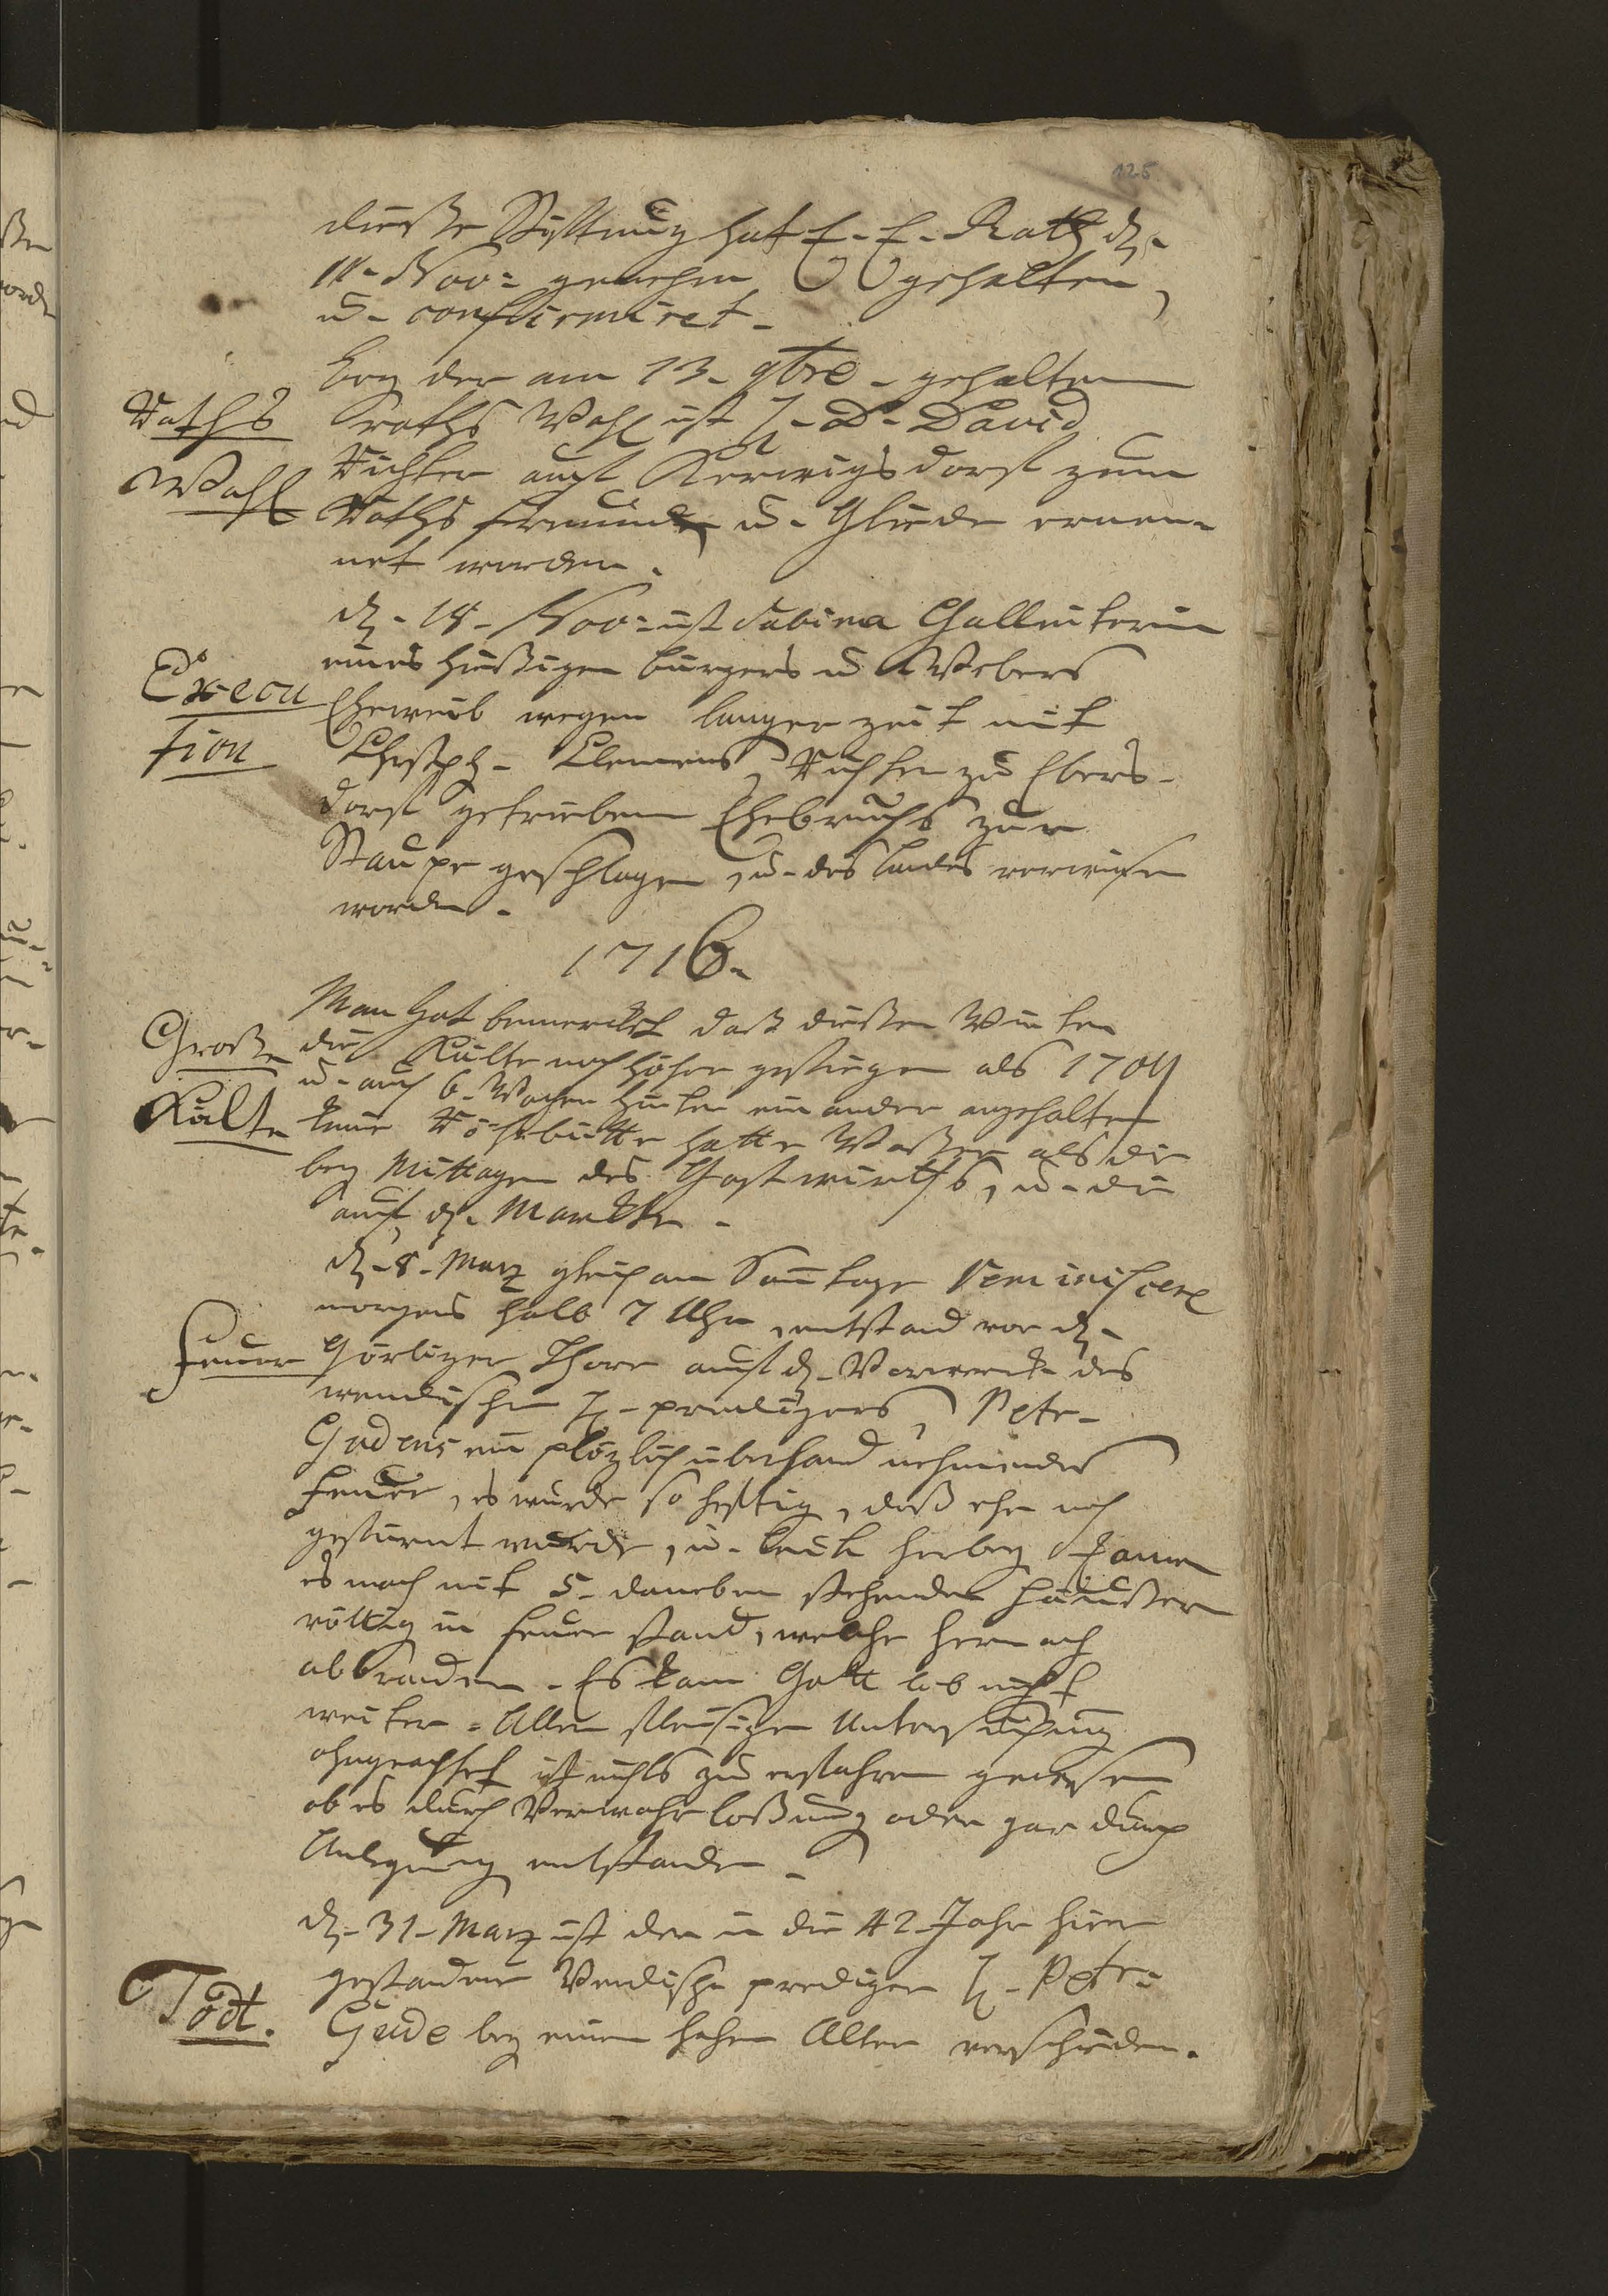 125
dieße Stifftung hat E. E. Rath d.
11. Nov: genehm gehalten,
u. confirmiret.
Bey der am 13. 9bre. gehaltenen
Raths Wahl
Raths Wahl ist H. D. David
Richter auf Kerwigsdorff zum
Raths freunde u. Gliede ernen-
net worden.
d. 18. Nov: ist Sabina
Execu
tion
eines hießigen Burgers u. Webers
Eheweib wegen langer Zeit mit
Christoph. Clemens, Richter zu Ebers-
dorff getriebenen Ehebruchs zur
Staupe geschlagen, u. des Landes verwiesen
worden.
1716.
Große
Kälte
Man hat bemerckt daß dießen Winter
die Kälte noch höher gestiegen als 1709
u. auch 6. Wochen hinter einander angehalten
keine Röhrbütte hatte Waßer als die
bey Mittagen des Gastwirths, u. die
auf d. Marckte.
d. 8. Marz gleich am Sontage Reminiscere
morgens halb 7 Uhr, entstand vor d.
Feuer
Görlizer Thore auf d. Vorwerck des
wendischen H. predigers, Petr.
Gudens ein plözlich überhand nehmendes
Feuer, es wurde so hefftig, daß ehe noch
gestürmt wurde, u. Leute herbey kamen
es nach mit 5. daneben stehenden Häußern
völlig in Feuer stand, welche hernach
abbranden. Es kam Gott lob nicht
weiter. Aller fleisigen Untersuchung
ohngeachtet ist nichts zu erfahren gewesen
ob es durch Verwahrloßung oder gar durch
Anlegung entstanden.
d. 31. Marz ist der in die 42 Jahr hier
Todt.
gestandene Wendische prediger H. Petr:
Gude bey einem hohen Alter verschieden.